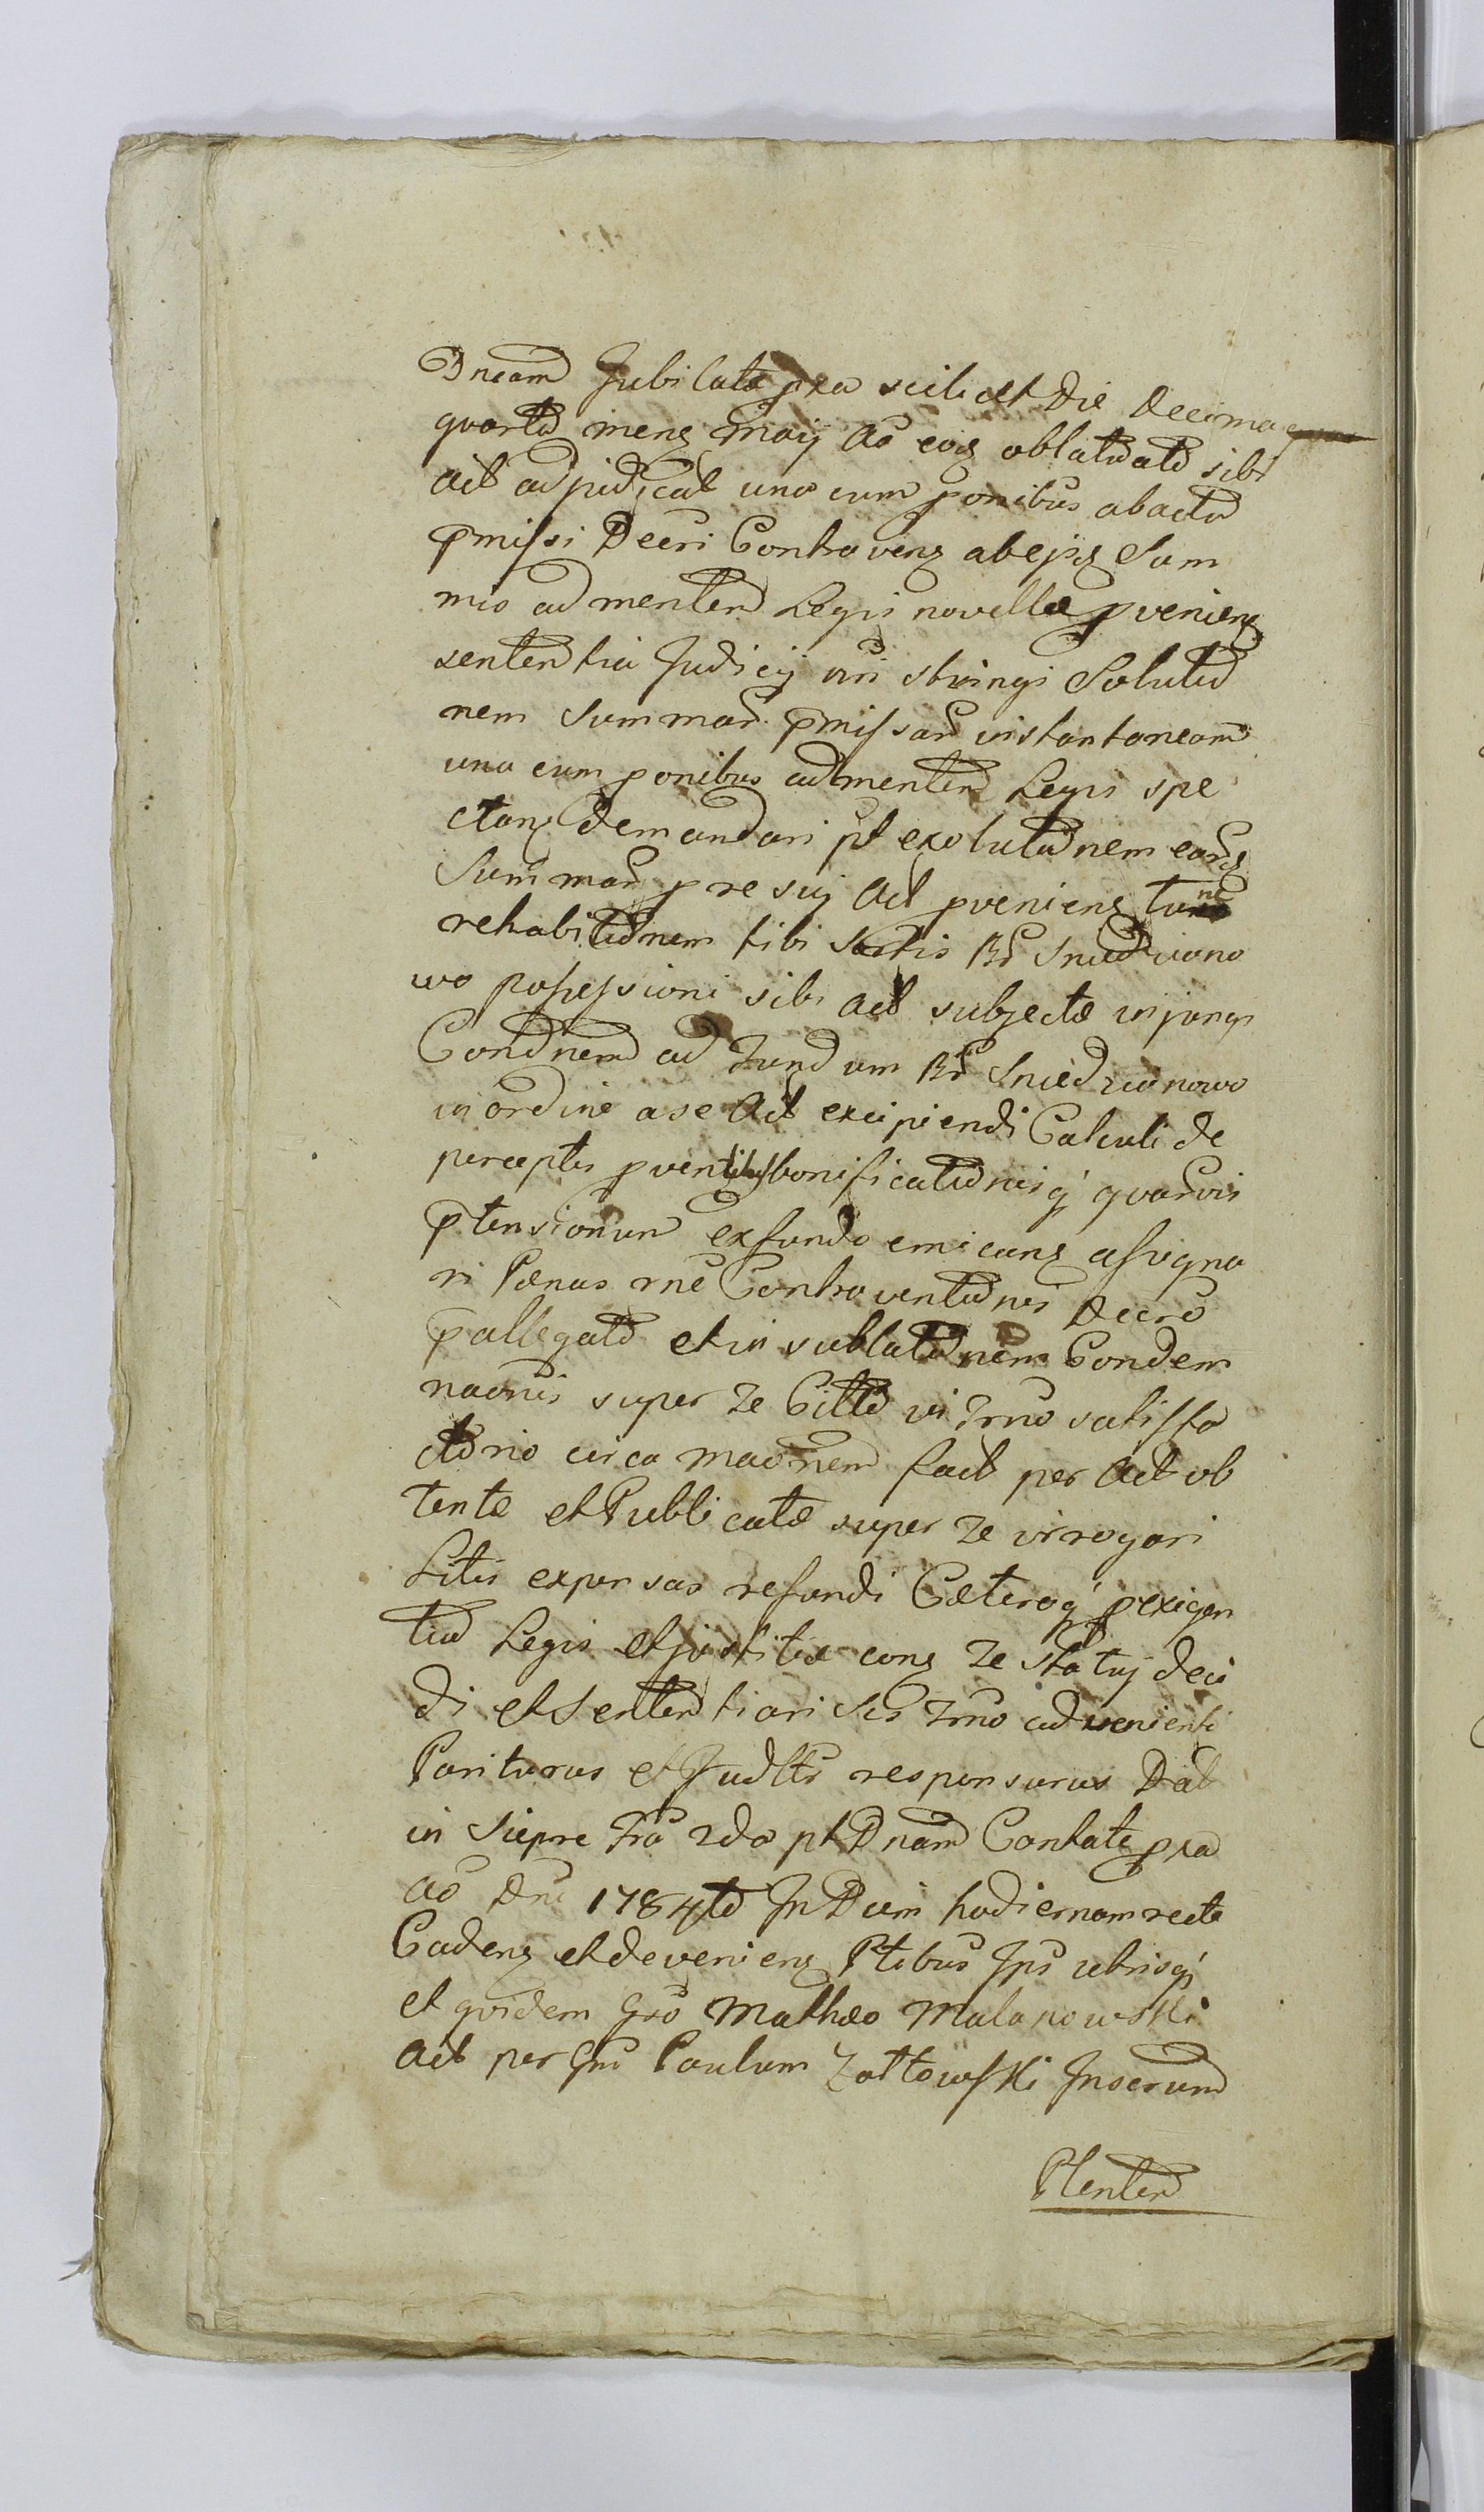 Dneam Jubilate pxa scilicet Die Decima
quarta mens maij ao eog oblatâ atd sibi
act adjudicat una cum pœnibus ab actu
pmissi Decri Contraveng ab ejsg Sum
mis ad mentem Legis novellæ proveniens
sententia Judicij vri stringi Solutio
nem summar pmissar instantaneam
una cum pœnibus ad mentem Legis spe
ctang demandari pt exolutionem earg
Summar pre suj act proveniens tunc
rehabitionem tibi Sortis Br Sniedzwano
wo possessioni sibi act subjectæ injungi
Condnem ad Fundum Br Sniedzianowo
in ordine a se act excipiendi Calculi de
perceptis proventibus bonificationisq quarvis
ptensionum ex fundo emicang assigna
ri Pænas rne Contraventionis Decro
pallegato et in sublationem Condem
naonis super Te Citto in Trno satisfa
ctorio circa maonem fact per Act ob
tentæ et Publicatæ super Te irrogari
Litis expensas refundi Cæteraq pexigen
tia Legis et justitiæ cong Te statuj deci
di et Sententiari Scis Trno adveniente
Pariturus et Judltr responsurus Dat
in Sierpc Fra 2da pt Dnam Cantate pxa
ao Dni 1784to In Diem hodiernam recte
Cadens et deveniens Ptibus Ips utrisq
et quidem Gro Mathæo Malanowski
Act per Gnr Paulum Zółtowski Juserum
Plenten